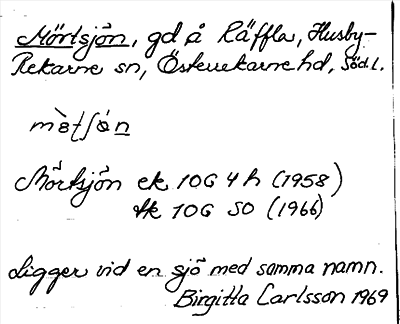 Mörtsjön, gd å Räffla, Husby-
Rekarne sn, Österrekarne hd, Södl.
Mörtsjön ek 10G 4h (1958)
tk 10G SO (1966)
Ligger vid en sjö med samma namn.
Birgitta Carlsson 1969